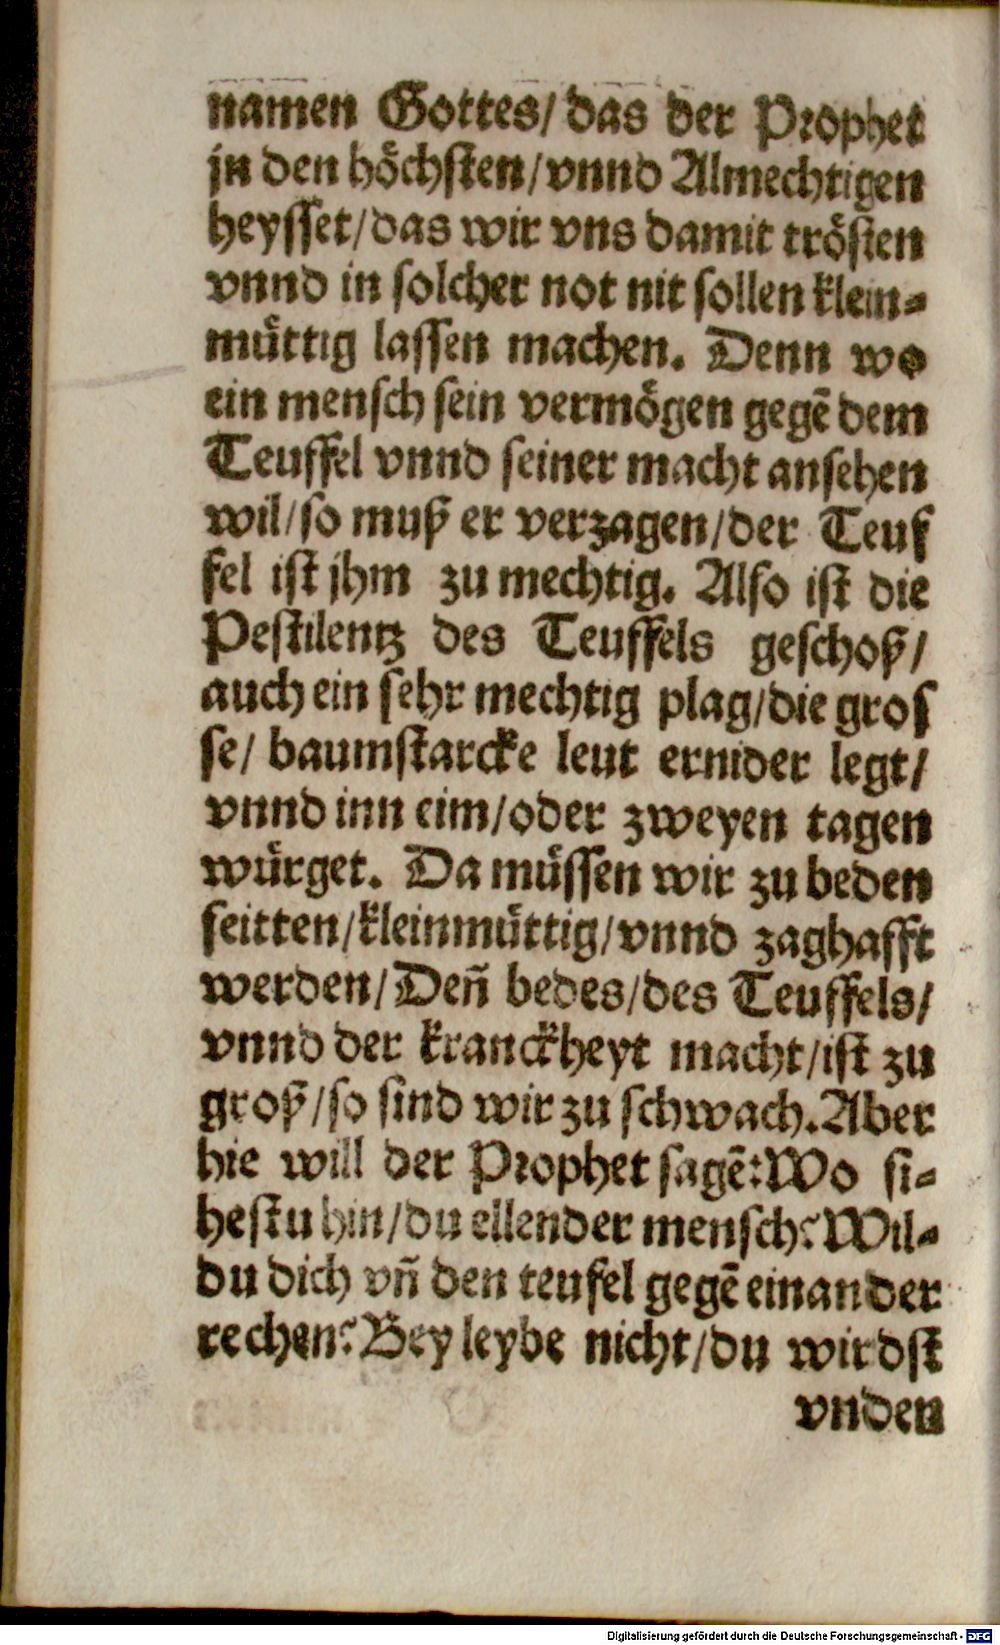 namen Gottes/ das der Prophet
jn den höchsten/ vnnd Almechtigen
heysset/ das wir vns damit trösten
vnnd in solcher not nit sollen klein⸗
müttig lassen machen. Denn wo
ein mensch sein vermögen gegē dem
Teuffel vnnd seiner macht ansehen
wil/ so muß er verzagen/ der Teuf
fel ist jhm zu mechtig. Also ist die
Pestilentz des Teuffels geschoß/
auch ein sehr mechtig plag/ die gros
se/ baumstarcke leut ernider legt/
vnnd inn eim/ oder zweyen tagen
würget. Da müssen wir zu beden
seitten/ kleinmüttig/ vnnd zaghafft
werden/ Deñ bedes/ des Teuffels/
vnnd der kranckheyt macht/ ist zu
groß/ so sind wir zu schwach. Aber
hie will der Prophet sagē: Wo si⸗
hestu hin/ du ellender mensch? Wil⸗
du dich vñ den teufel gegē einander
rechen? Bey leybe nicht/ du wirdst
vnden
Digitalisierung gefördert durch die Deutsche Forschungsgemeinschaft - DFG